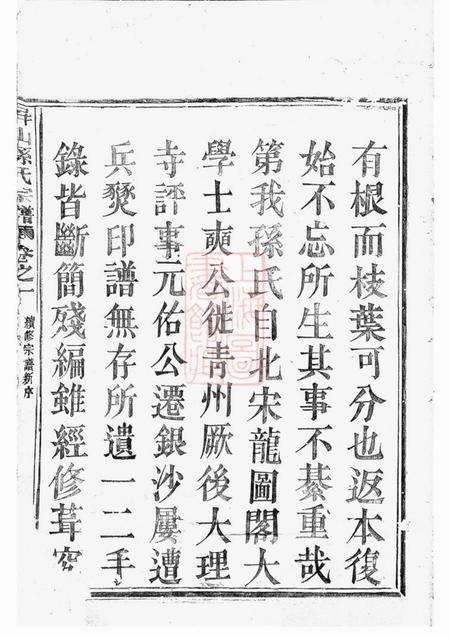 有根而枝葉可分也返本復
始不忘所生其事不綦重哉
第我孫氏自北宋龍圖閣大
學士奭公徙青州厥後大理
寺評事元佑公遷銀沙屢遭
兵燹印譜無存所遺一二手
錄皆斷簡殘編雖經修葺究
屏山孫氏宗譜 卷之一
續修宗譜新序